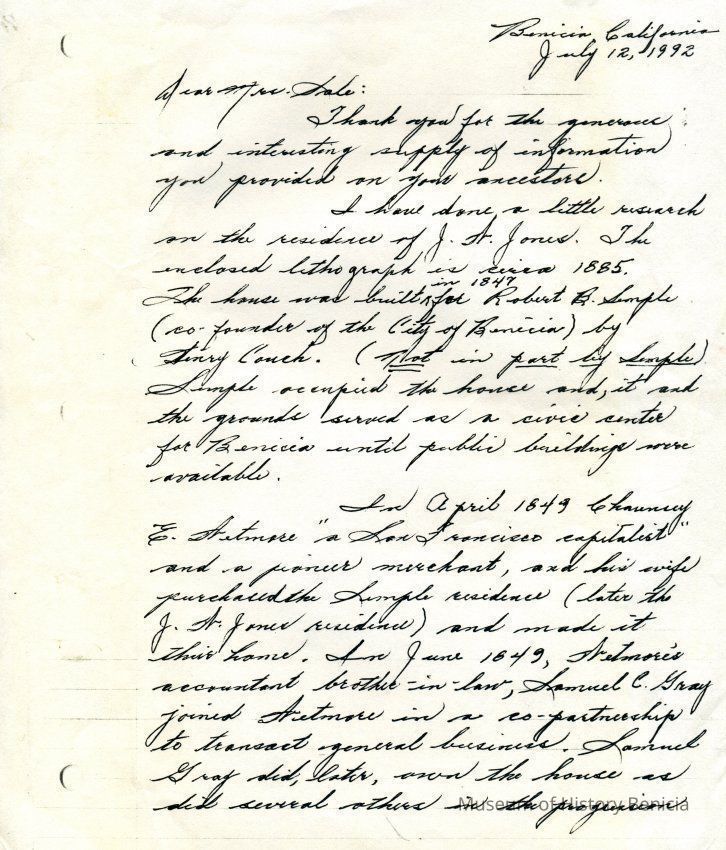 Benicia, California
July 12, 1992
Dear Mrs. Sale:
Thank you for the generous
and interesting supply of information
you provided on your ancestors.
I have done a little research
on the residence of J. W. Jones. The
enclosed lithograph is circa 1885.
in 1847
The house was built for Robert B. Semple
(co-founder of the City of Benicia) by
Henry Couch. (Not in part by Semple)
Semple occupied the house and, it and
the grounds served as a civic center
for Benicia until public buildings were
available.
In April 1849 Chaunsey
E. Wetmore "a San Francisco capitalist"
and a pioneer merchant, and his wife
purchased the Semple residence (later the
J. W. Jones residence) and made it
their home. In June 1849, Wetmore's
accountant brother-in-law, Samuel C. Gray
joined Wetmore in a co-partnership
to transact general business. Samuel
Gray did, later, own the house as
did several others in the progression
Museum of History Benicia